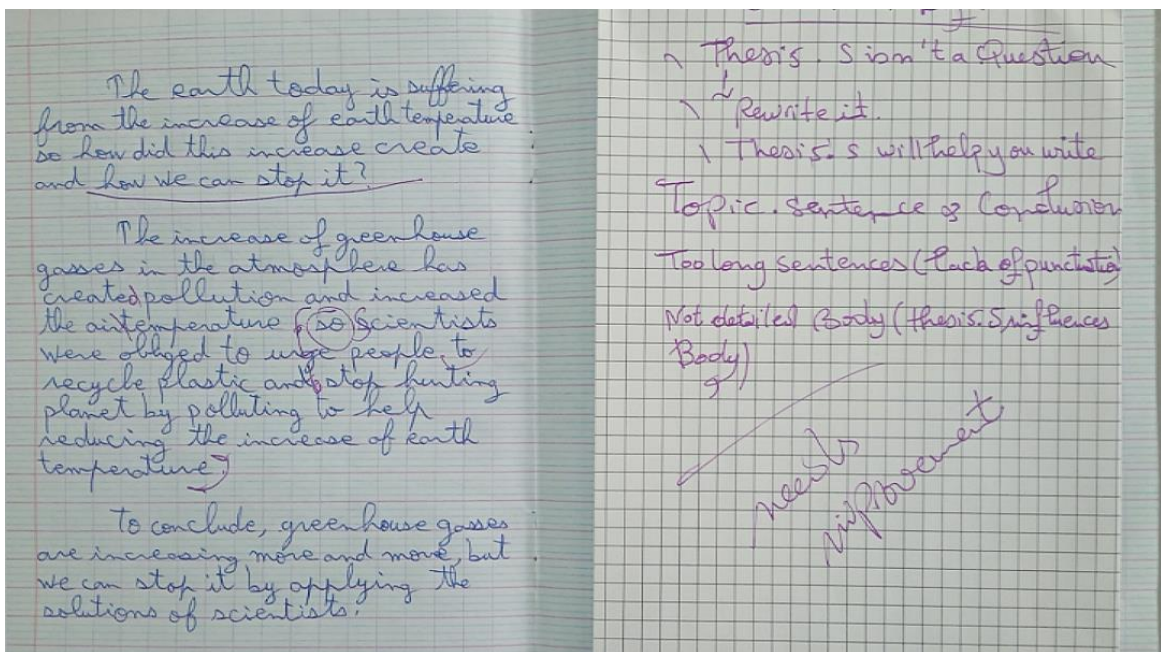 The earth today is suffering
from the increase of earth temperature
so how did this increase create
and how we can stop it?
The increase of greenhouse
gasses in the atmosphere has
created pollution and increased
the air temperature so Scientists
were obliged to urge people to
recycle plastic and stop hunting
planet by polluting to help
reducing the increase of earth
temperature
To conclude, greenhouse gasses
are increasing more and more, but
we can stop it by applying the
solutions of scientists.
Thesis. S isn't a Question
Rewrite it.
Thesis. s will help you write
Topic. sentence & Conclusion
Too long sentences (lack of punctuatio)
Not detailed Body (thesis. S influences
Body)
needs
improvement